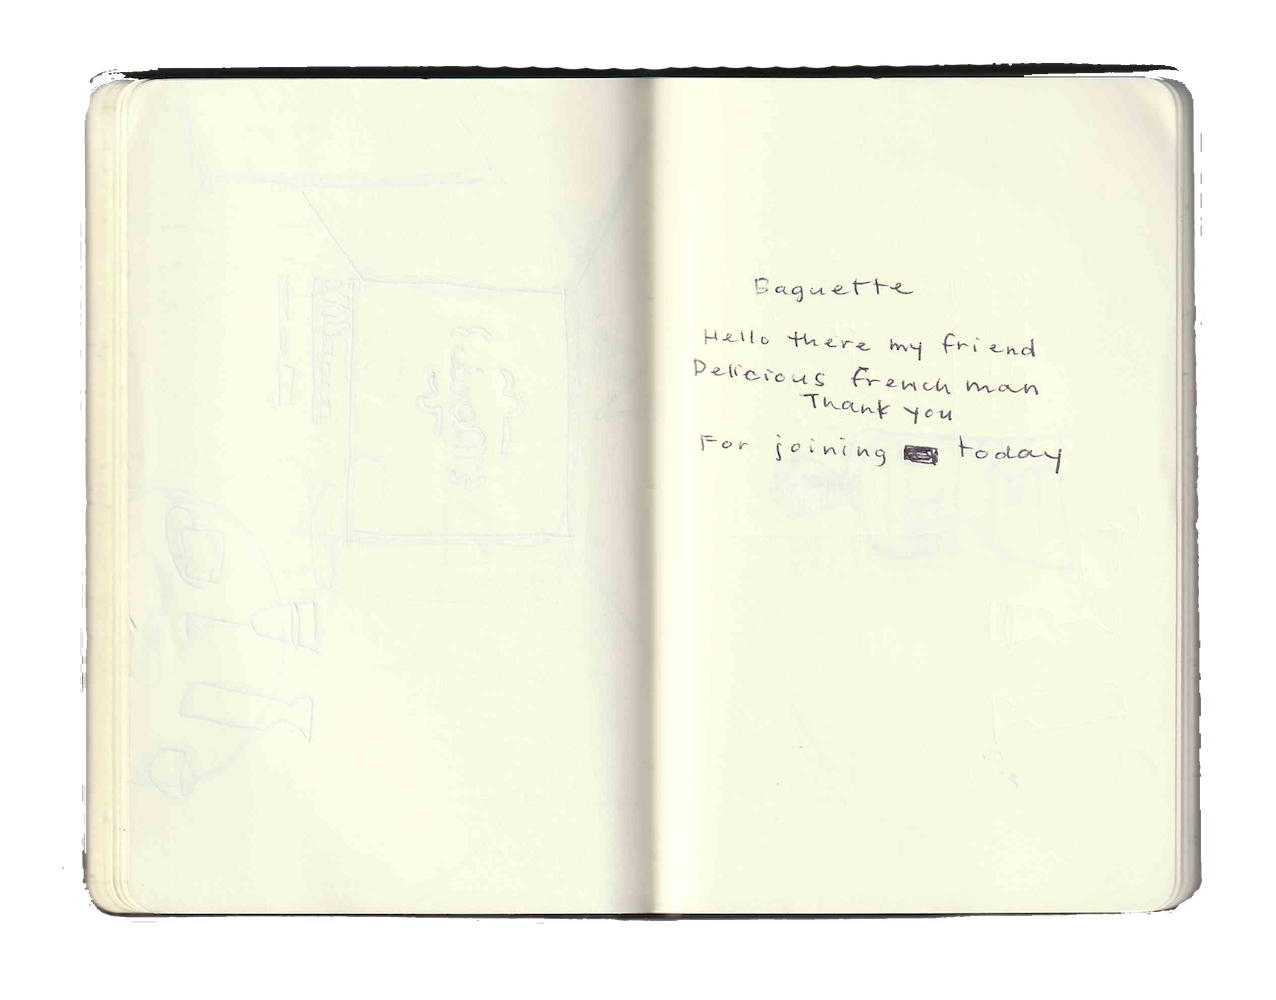 Baguette
Hello there my friend
Delicious French man
Thank you
For joining today